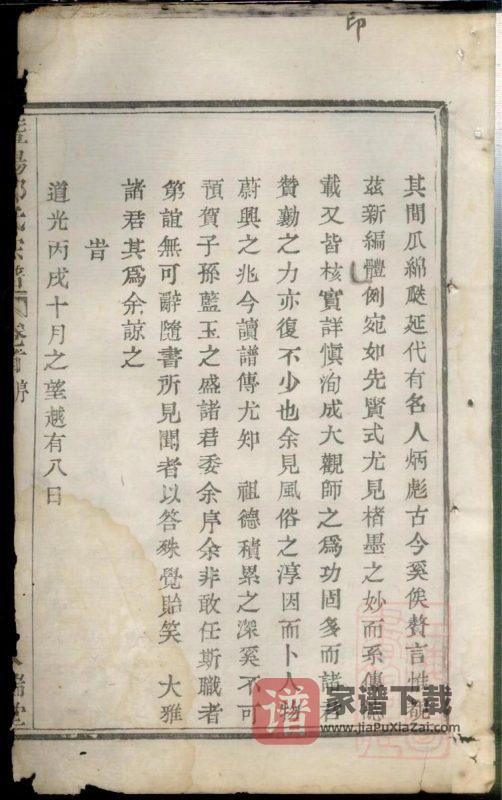 印
其間瓜綿瓞延代有名人炳彪古今奚俟贅言惟
茲新編體例宛如先賢式尤見楮墨之妙而系傳
載又皆核實詳愼洵成大觀師之爲功固多而諸君
贊勷之力亦復不少也余見風俗之淳因而卜人物
蔚興之兆今讀譜傳尤知 祖德積累之深奚不可
預賀子孫藍玉之盛諸君委余序余非敢任斯職者
第誼無可辭隨書所見聞者以答殊覺貽笑 大雅
諸君其爲余諒之
旹
道光丙戌十月之望越有八日
陽 氏宗譜 卷首 序
堂
谱 家谱下载
www.jiaPuXiaZai.com